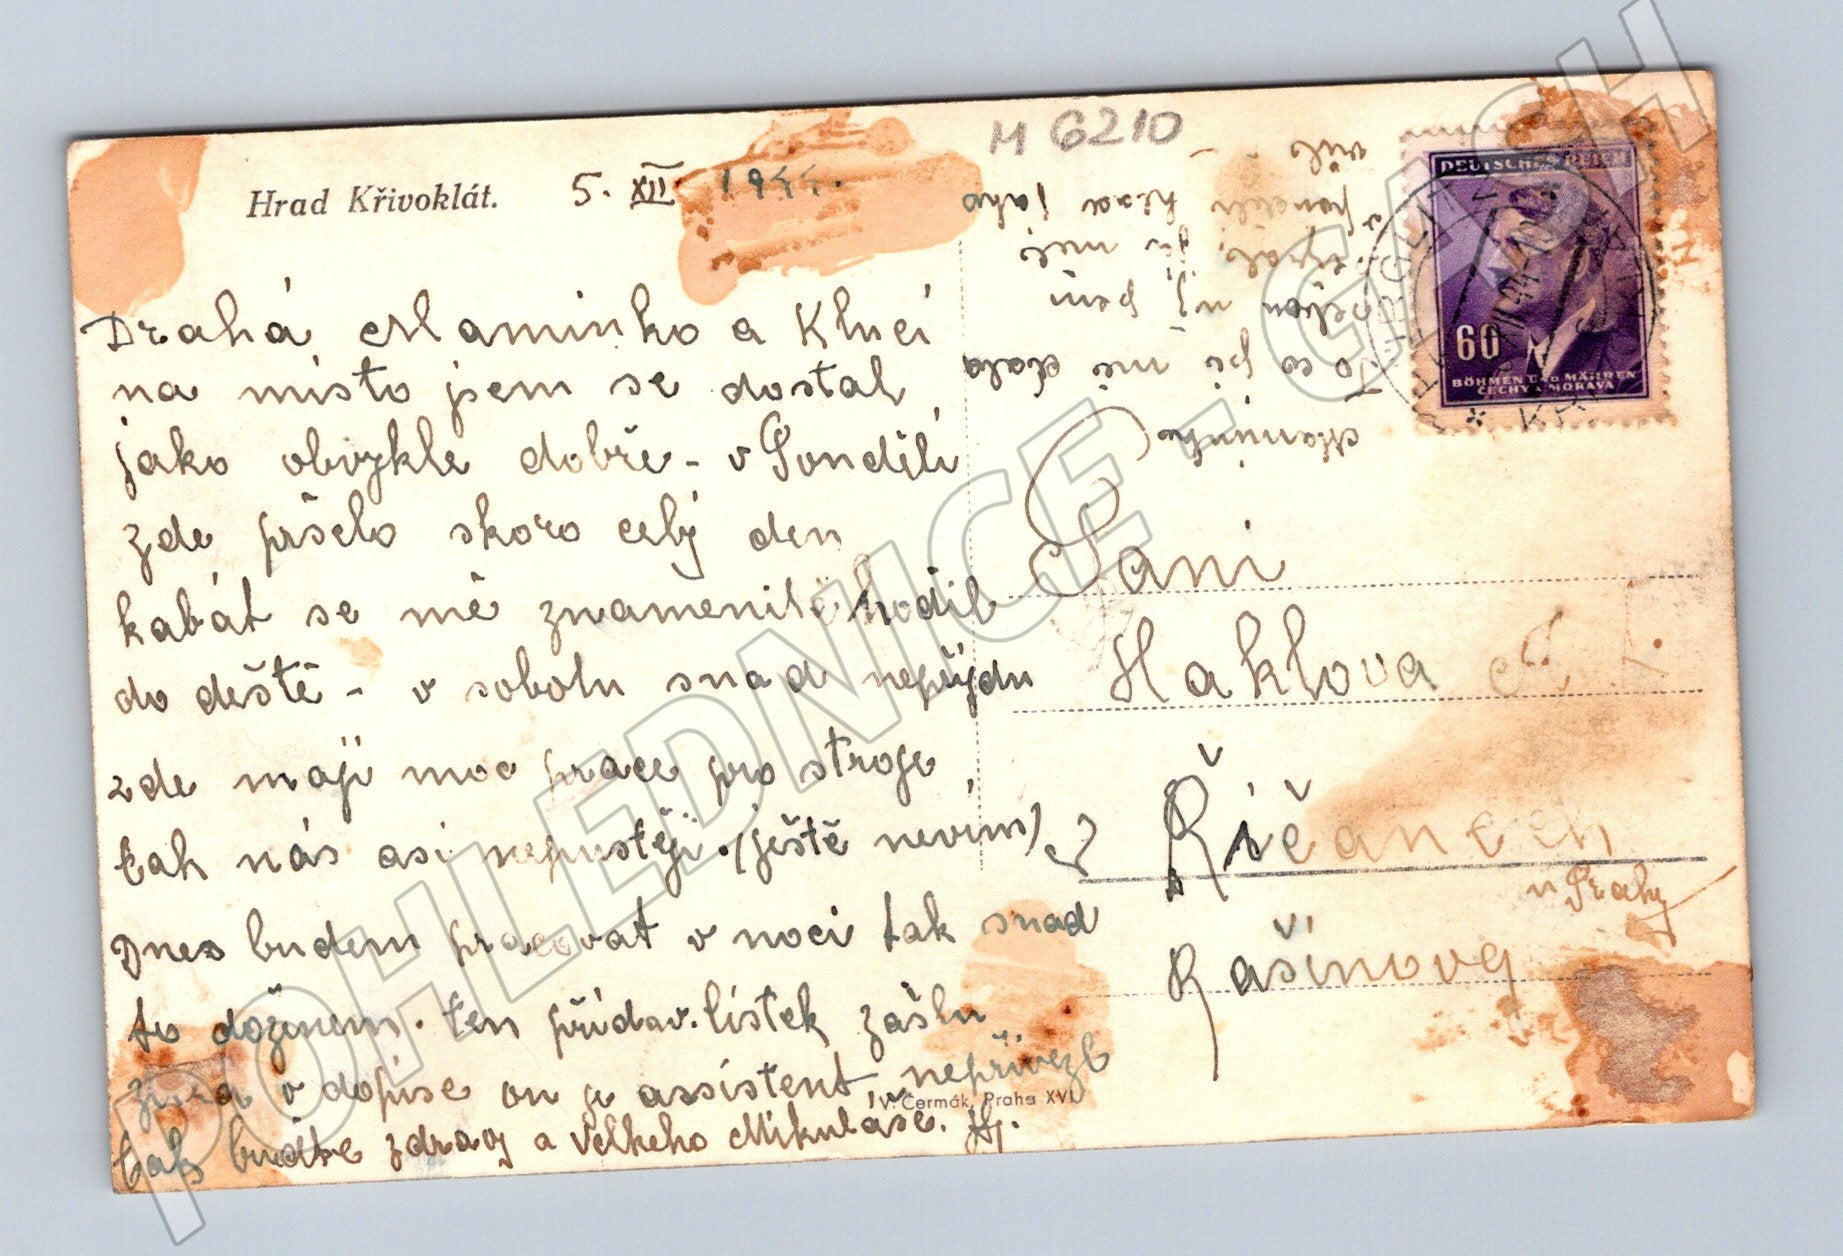 Hrad Křivoklát.
5. XII. 1944.
M 6210
Drahá Maminko a Kluci
na místo jsem se dostal
jako obvykle dobře - v Pondělí
zde pršelo skoro celý den
kabát se mě znamenitě hodil
do deště - v sobotu snad nepřijdu
zde mají moc prace pro stroje
tak nás asi nepustěji. (ještě nevím)
Dnes budem pracovat v noci tak snad
to doženem. ten přídav. lístek zašlu
zitra v dopise on je assistent nepřivezl
tak buďte zdravy a Velkeho Mikuláše.
V. Čermák, Praha XVI.
Maminko
To co jsi mě dala
pění
je mě
hlad jako
vlk
DEUTSCHES REICH
60
BÖHMEN UND MÄHREN
ČECHY A MORAVA
Paní
Haklova
v Řičanech
u Prahy
Rašínovy
POHLEDNICE - GASH